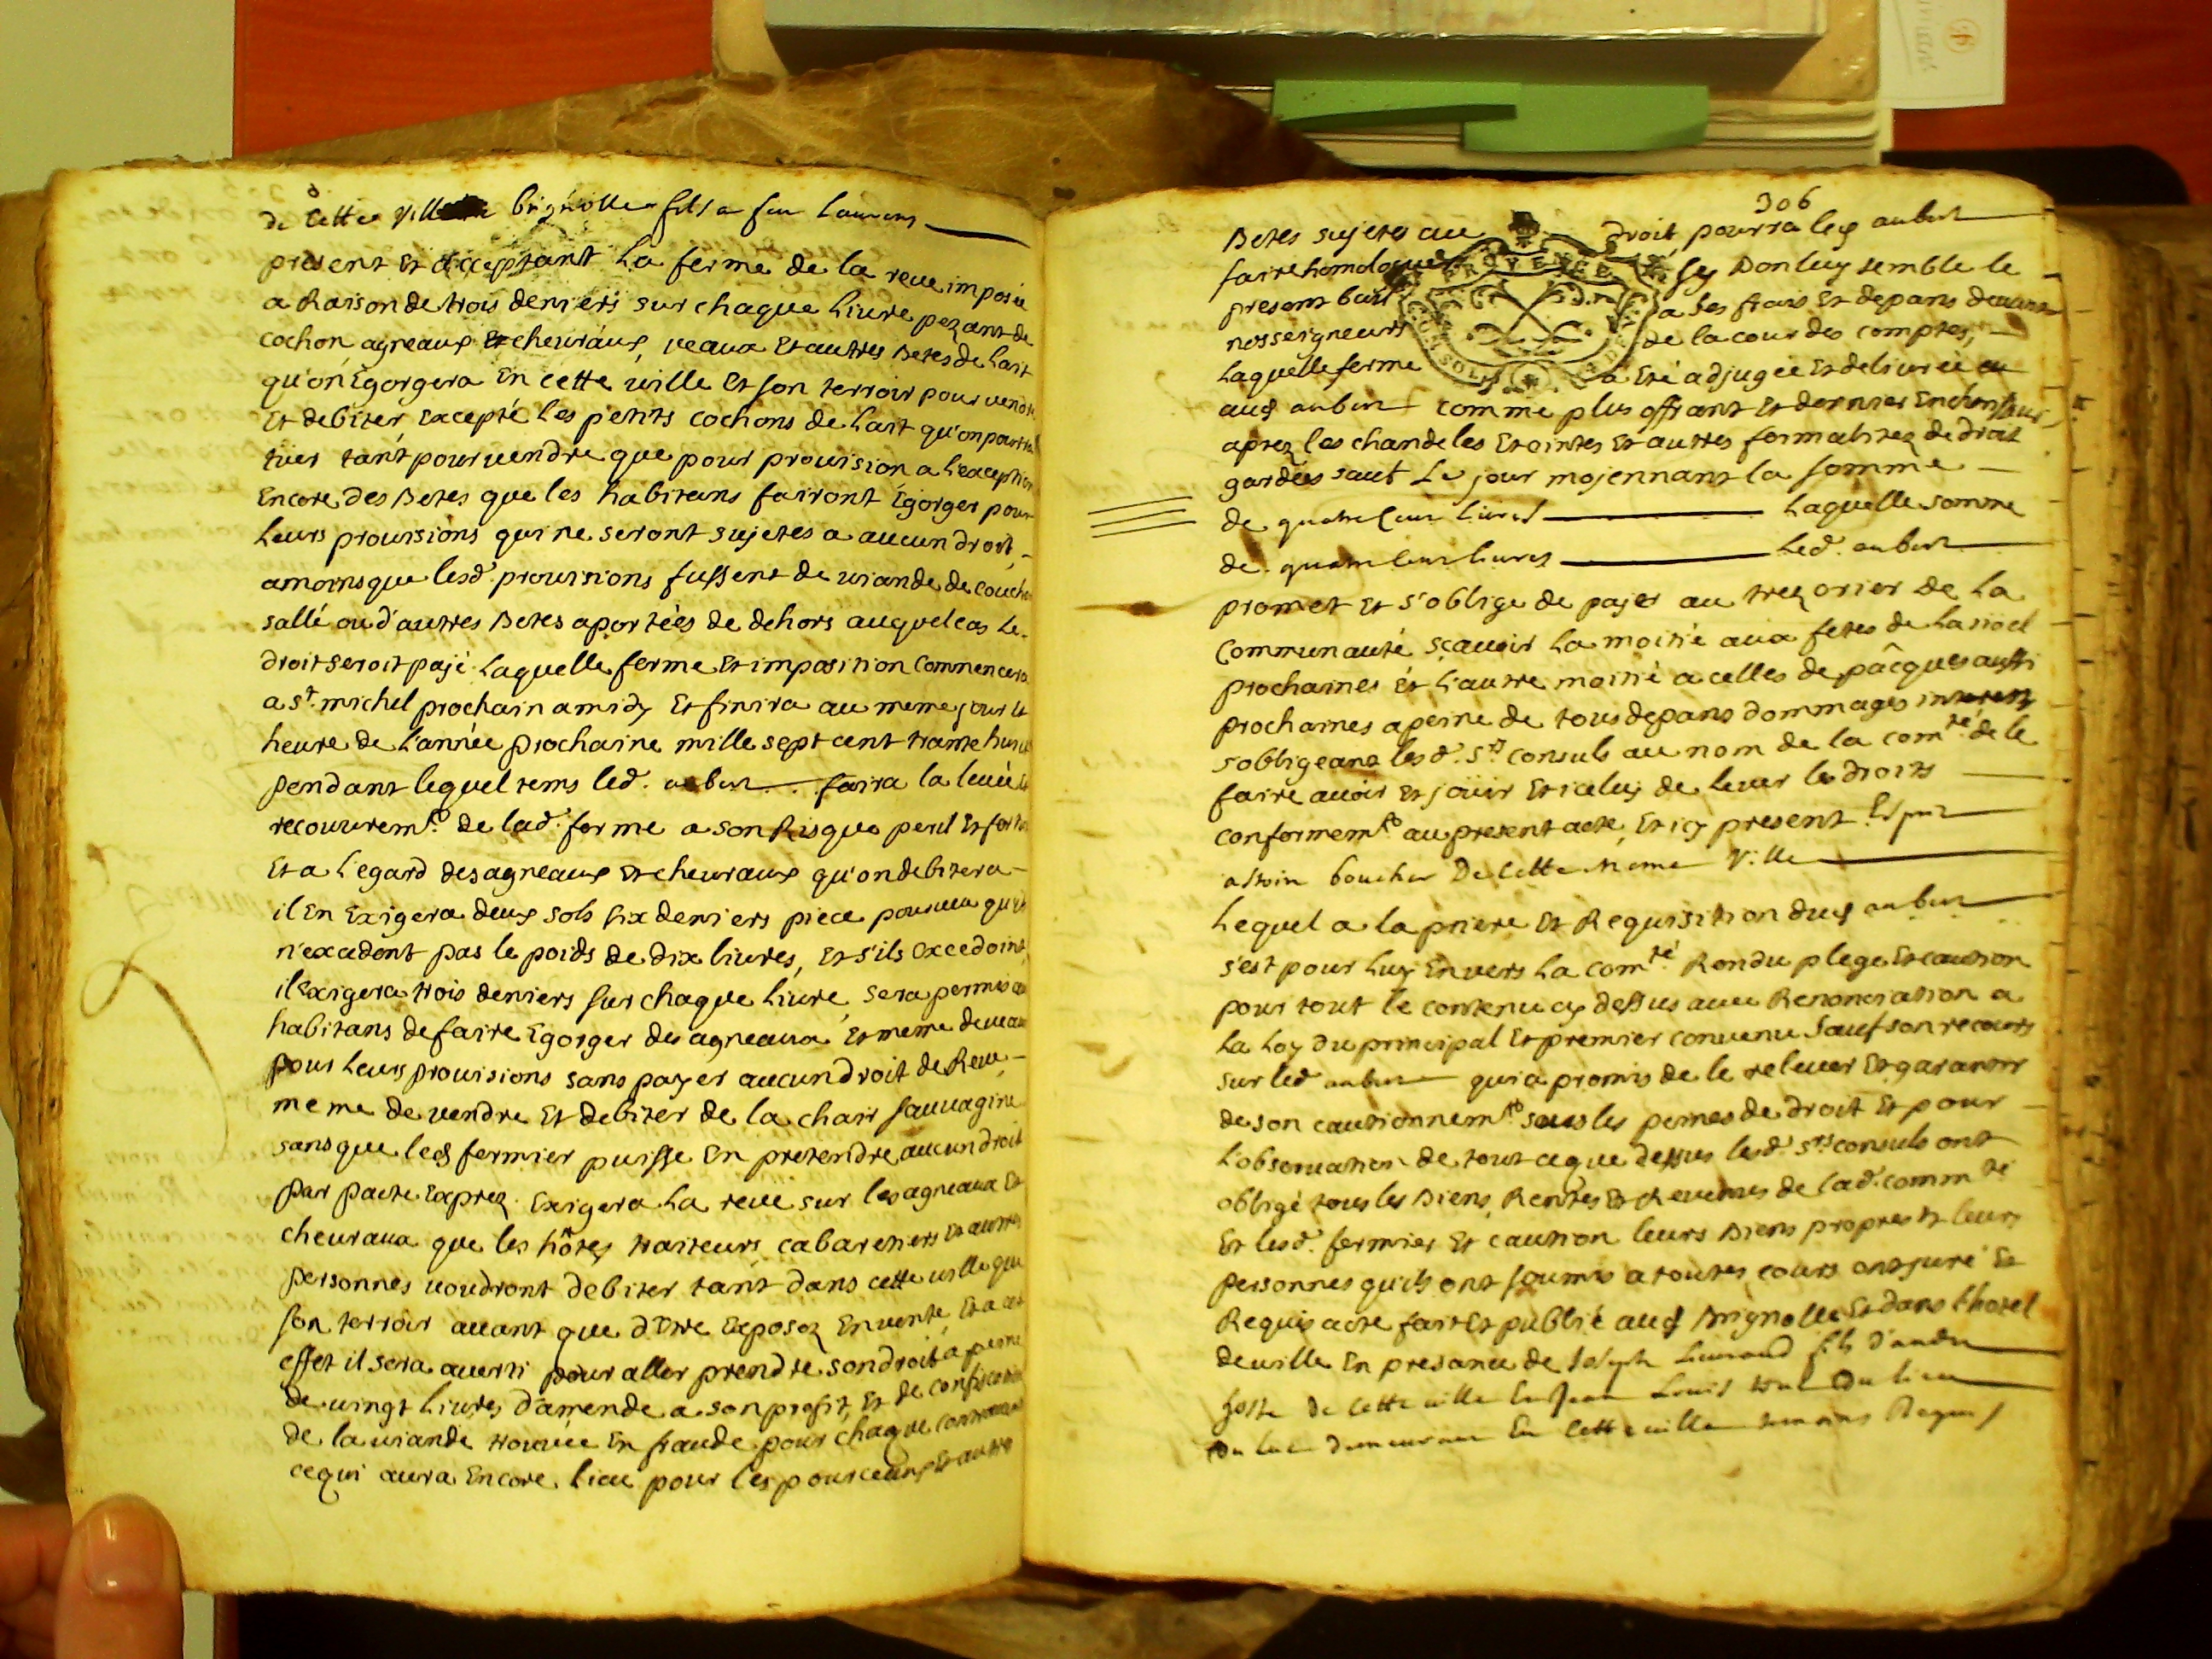 de cette ville brignolle fils a feu Laurens
present et acceptant La ferme de la reve imposée
a Raison de trois deniers sur chaque Livre pezant de
cochon agneaux et chevraux, veaux et autres Betes de Lait
qu'on Egorgera En cette ville et son terroir pour vendre
Et debiter, Excepté les petits cochons de Lait qu'on pourra
tüer tant pour vendre que pour provision a l'exception
Encore des Betes que les habitans fairont Egorger pour
Leurs provisions qui ne seront sujetes a aucun droit,
amoins que lesd. provisions fussent de viande de couchon
sallé ou d'autres Betes aportées de dehors auquel cas Le
droit seroit pajé. Laquelle ferme et imposition Commencera
a St. michel prochain a midy Et finira au meme jour et
heure de L'année prochaine mille sept cent trante huit
pendant lequel tems led. aubert faira la levée et
recouvremt. de lad. ferme a son Risque peril et fortune
Et a L'egard des agneaux et chevraux qu'on debitera
il En Exigera deux sols six deniers piece pourveu qu'ils
n'excedent pas le poids de dix livres, Et s'ils Excedoint,
il Exigera trois deniers sur chaque Livre, sera permis aux
habitans de faire Egorger des agneaux et meme de veaux
pour Leurs provisions sans payer aucun droit de Reve,
meme de vendre et debiter de la chair sauvagine
sans que led fermier puisse En pretendre aucun droit
par pacte Exprez. Exigera La reve sur les agneaux et
chevraux que les hôtes traiteurs cabaretiers et autres
personnes voudront debiter tant dans cette ville que
son terroir avant que d'Etre Exposez En vente, Et a cet
effet il sera averti pour aller prendre son droit a peine
de vingt Livres d'amende a son profit, Et de confiscation
de la viande trouvée En fraude pour chaque contravention
ce qui aura Encore lieu pour les pourceaux et autres
306
Betes sujetes au droit pourra led aubert
faire homologuer sy Bon luy semble le
present bail a ses frais Et depans devant
nosseigneurs de la cour des comptes,
Laquelle ferme a Eté adjugée Et delivrée au
aud aubert comme plus offrant Et dernier Encherisseur
aprez les chandeles Eteintes Et autres formalitez de droit
gardées sauf Le jour mojennant la somme
de quatre Cens Livres Laquelle somme
de quatre Cens livres Led. aubert
promet Et s'oblige de pajer au trezorier de La
Communauté sçavoir La moitié aux fetes de La noel
prochaines Et L'autre moitié a celles de pâcques aussi
prochaines a peine de tous depans dommages interets
s'obligeans lesd. Srs consuls au nom de la comté. de le
faire avoir Et joüir Et iceluy de lever les droits
conformemt. au present acte, Et icy present
boucher De Cette meme Ville
Lequel a la priere Et Requisition dud aubert
s'est pour Luy Envers La comté. Rendu plege Et caution
pour tout le contenu cy dessus avec Renonciation a
La Loy du principal Et premier convenu Sauf son recours
sur led aubert qui a promis de le relever Et garantir
de son cautionnemt. sous les peines de droit Et pour
L'observation de tout ce que dessus lesd. Srs consuls ont
obligé tous les Biens, Rentes Et Revenus de Lad. commté
Et lesd. fermier Et caution leurs Biens propres Et leurs
personnes qu'ils ont soumis a toutes cours ont juré Et
Requis acte fait Et publié aud Brignolle Et dans L'hotel
de ville En presance de Joseph fils d'andre
hoste de Cette ville Et Jean Louis du lieu
du luc demeurant En Cette ville temoins Requis